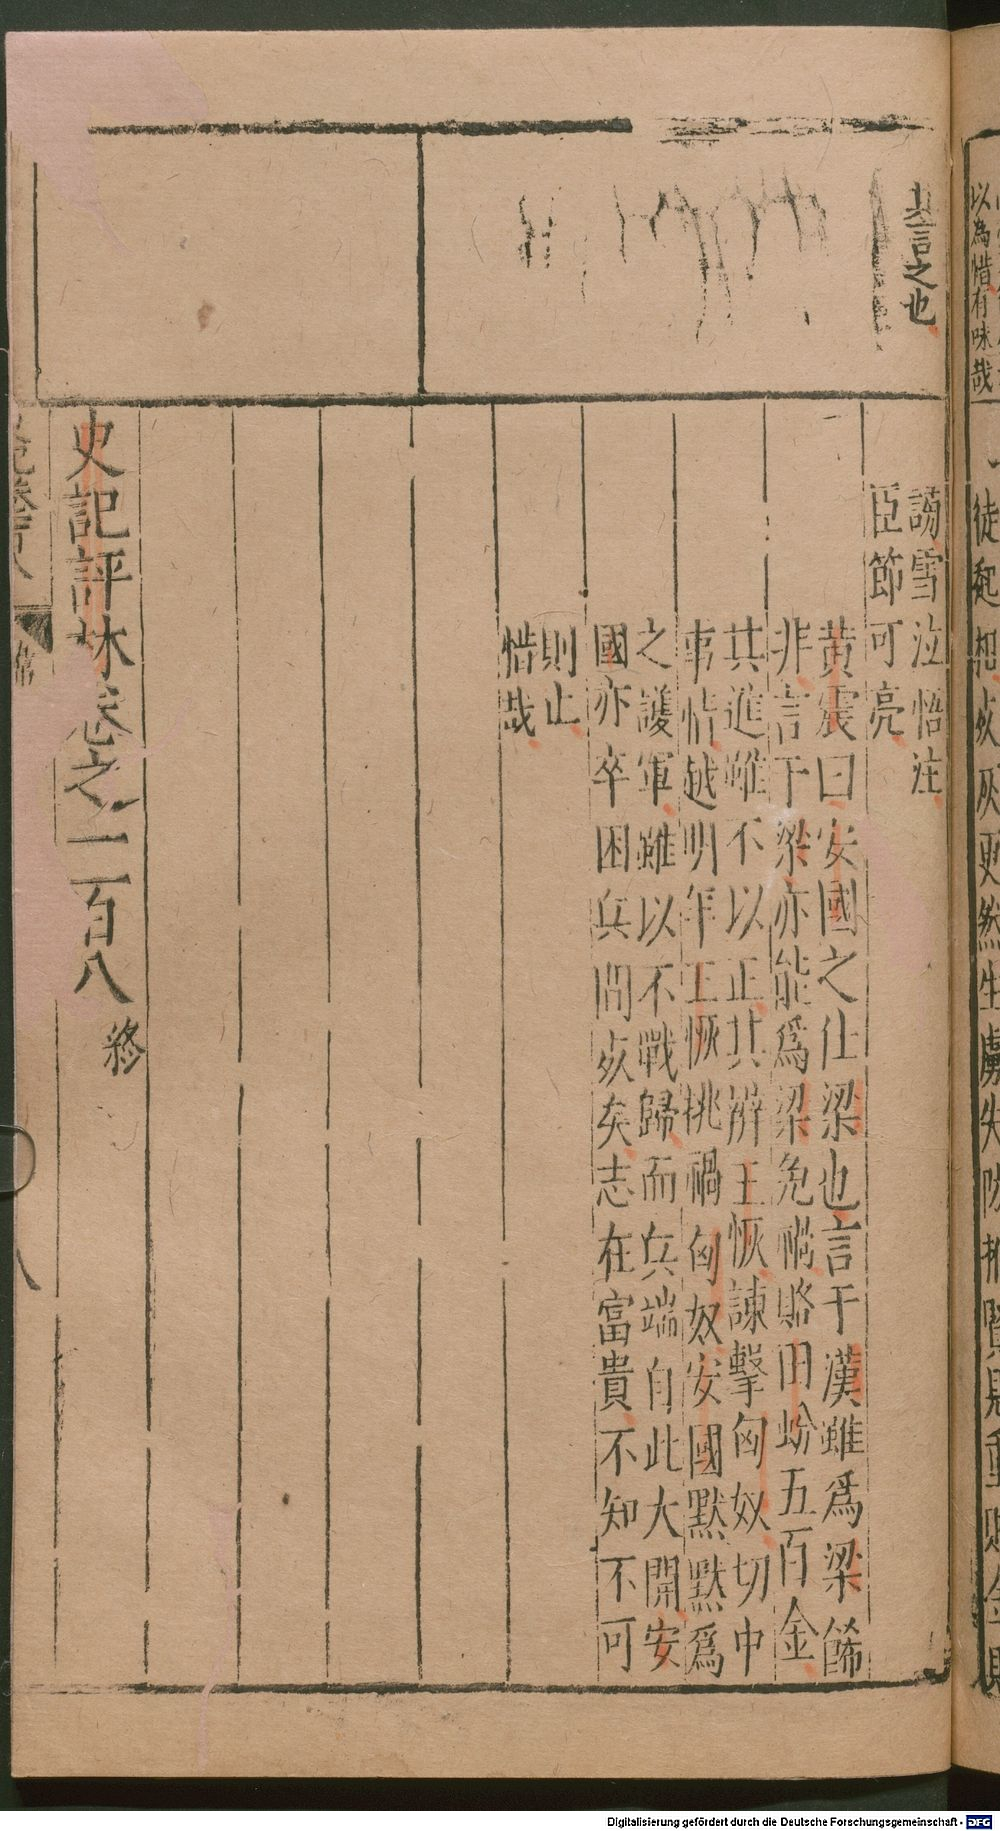 以為惜有味哉
徒起相死灰更然生虜失防推賢見重賄金貝
共言之也
謗雪泣悟注
臣節可亮
黃震曰安國之仕梁也言于漢雖爲梁餙
非言于梁亦能爲梁免禍賂田蚡五百金
其進唯不以正其辨王恢諫擊匈奴切中
事情越明年王恢挑禍匈奴安國默默爲
之護軍雖以不戰歸而兵端自此大開安
國亦卒困兵間死矣志在富貴不知不可
則止
惜哉
史記評林卷之一百八
終
八
Digitalisierung gefördert durch die Deutsche Forschungsgemeinschaft - DFG